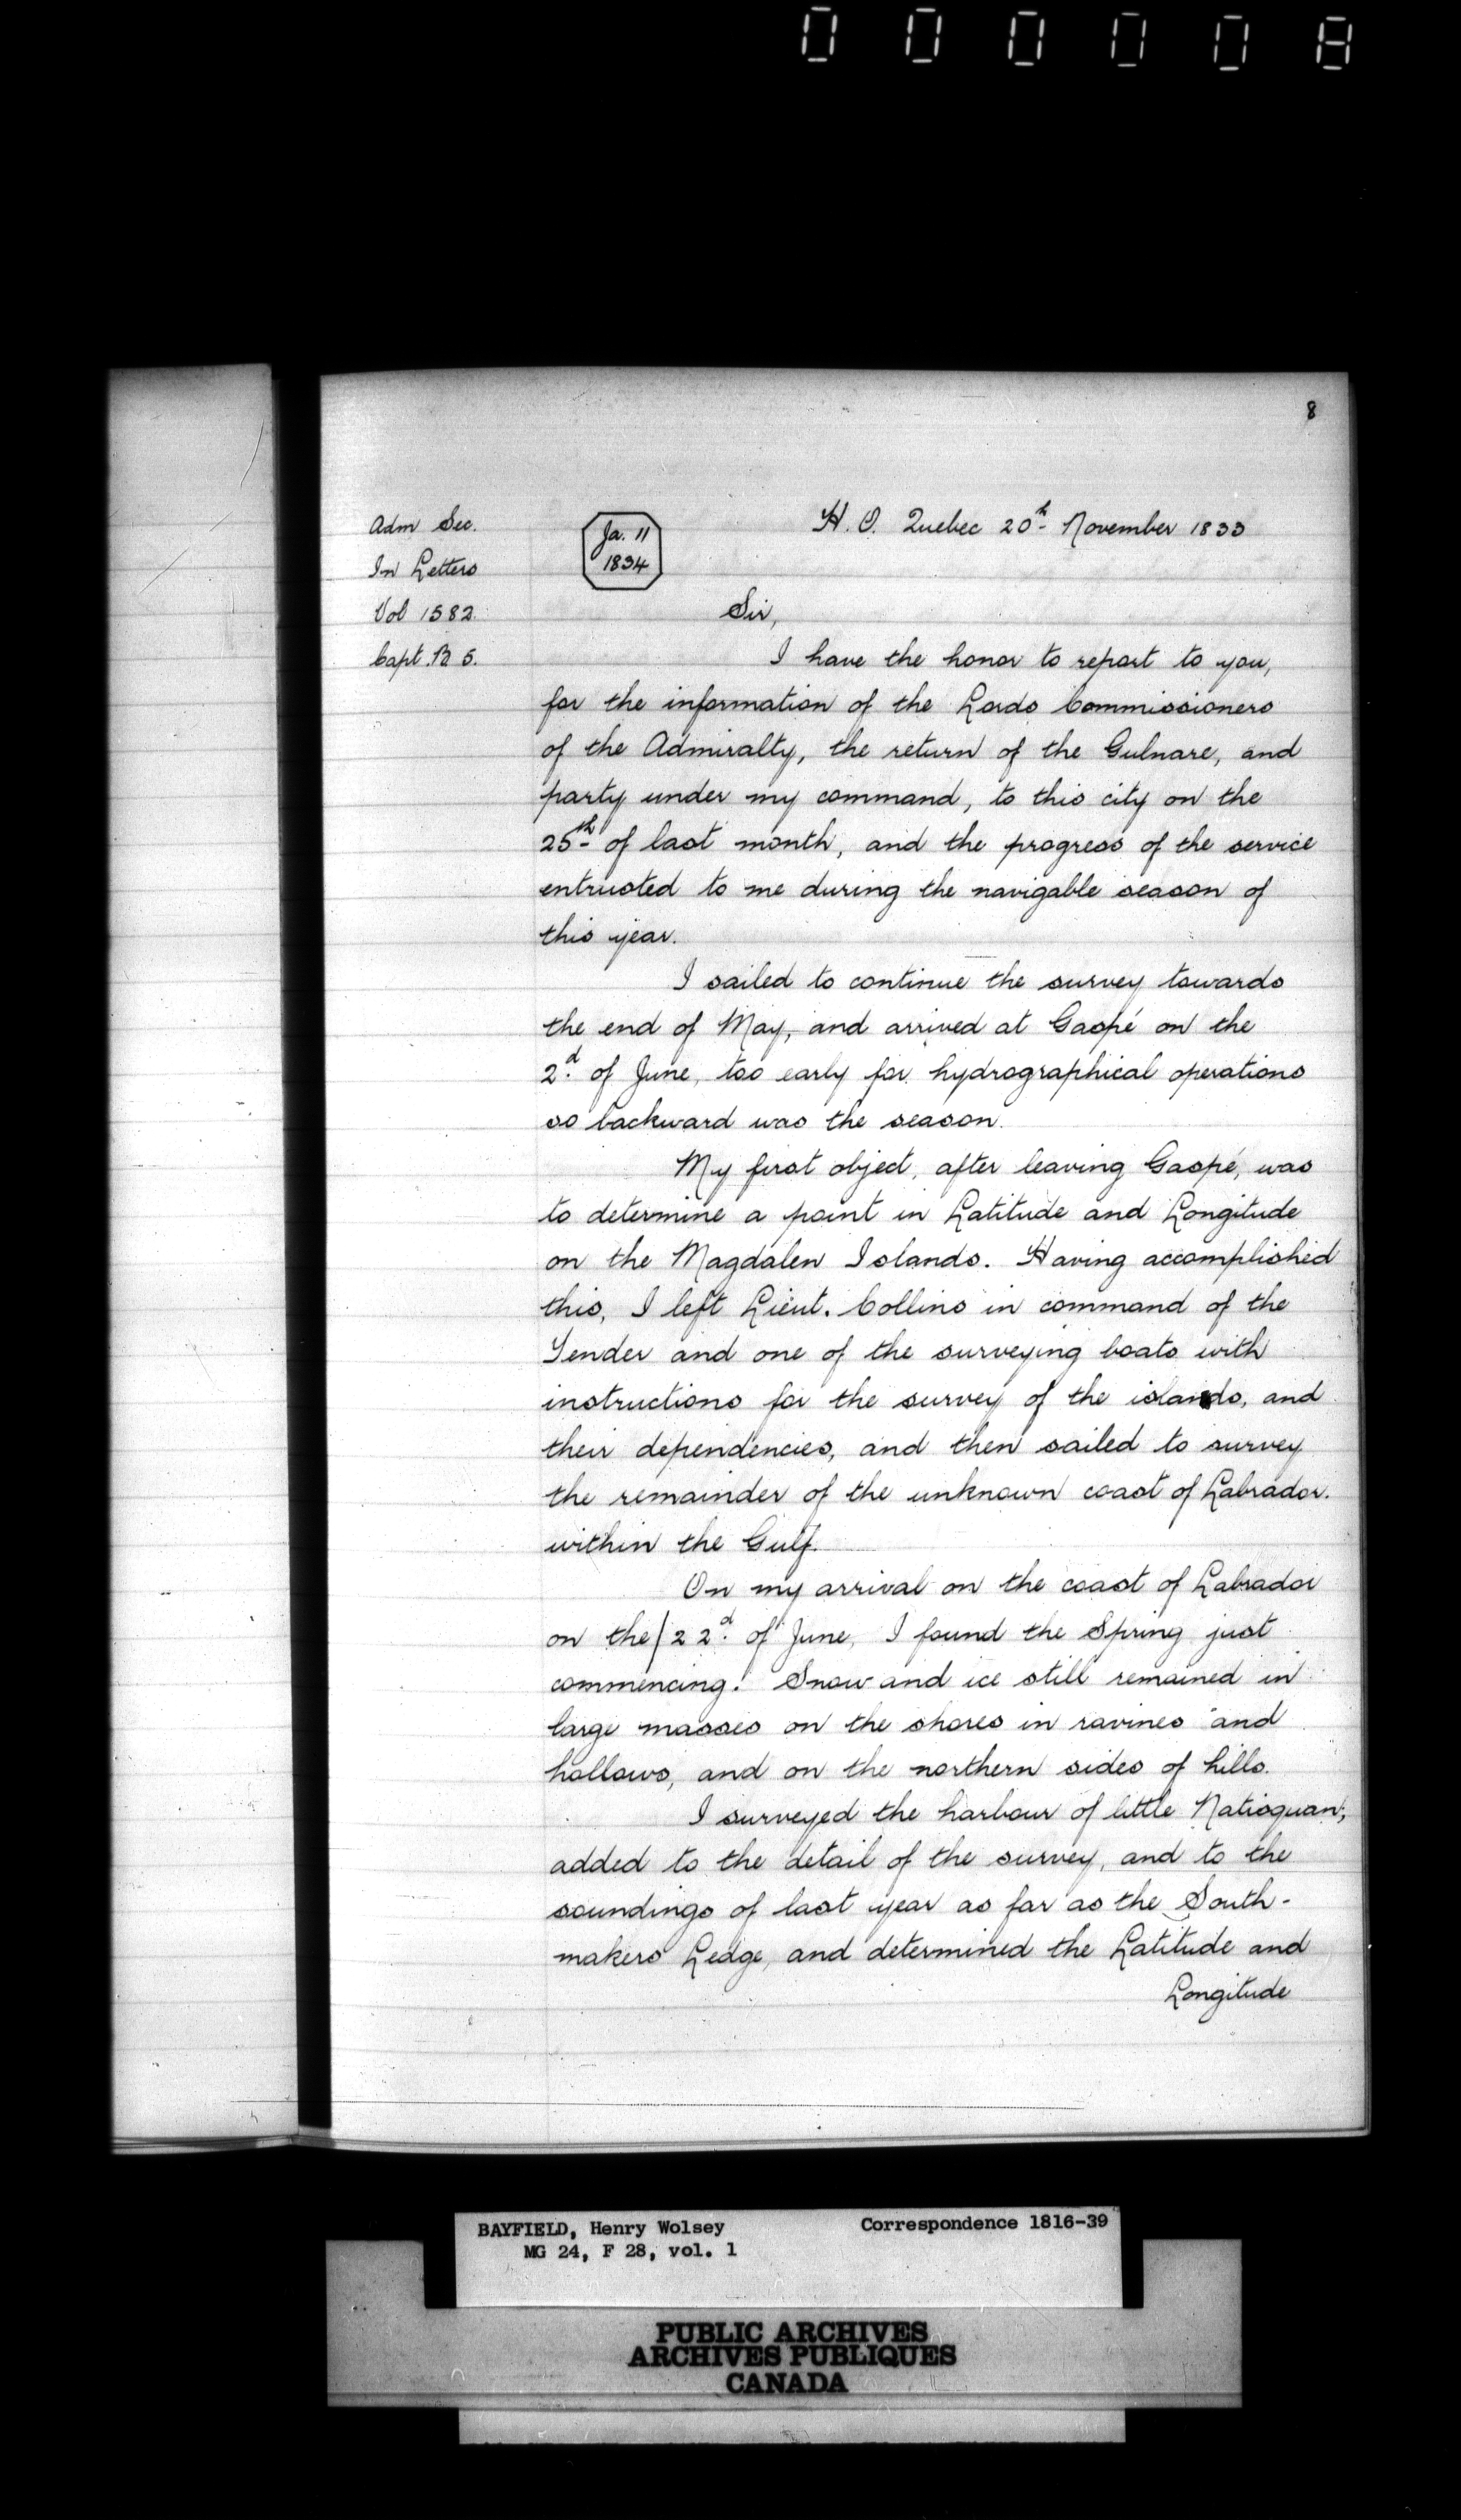 000008
8
Adm Sec.
In Letters
Vol 1582.
Capt. B 5.
Ja. 11
1834
H. O. Quebec 20th November 1833
Sir,
I have the honor to report to you,
for the information of the Lords Commissioners
of the Admiralty, the return of the Gulnare, and
party under my command, to this city on the
25th of last month, and the progress of the service
entrusted to me during the navigable season of
this year.
I sailed to continue the survey towards
the end of May, and arrived at Gaspé on the
2d. of June, too early for hydrographical operations
so backward was the season.
My first object, after leaving Gaspé, was
to determine a point in Latitude and Longitude
on the Magdalen Islands. Having accomplished
this, I left Lieut. Collins in command of the
Tender and one of the surveying boats with
instructions for the survey of the islands, and
their dependencies, and then sailed to survey
the remainder of the unknown coast of Labrador.
within the Gulf.
On my arrival on the coast of Labrador
on the/22d. of June, I found the Spring just
commencing. Snow and ice still remained in
large masses on the shores in ravines and
hollows, and on the northern sides of hills.
I surveyed the harbour of little Natisquan,
added to the detail of the survey, and to the
soundings of last year as far as the South-
makers Ledge, and determined the Latitude and
Longitude
BAYFIELD, Henry Wolsey Correspondence 1816-39
MG 24, F 28, vol. 1
PUBLIC ARCHIVES
ARCHIVES PUBLIQUES
CANADA